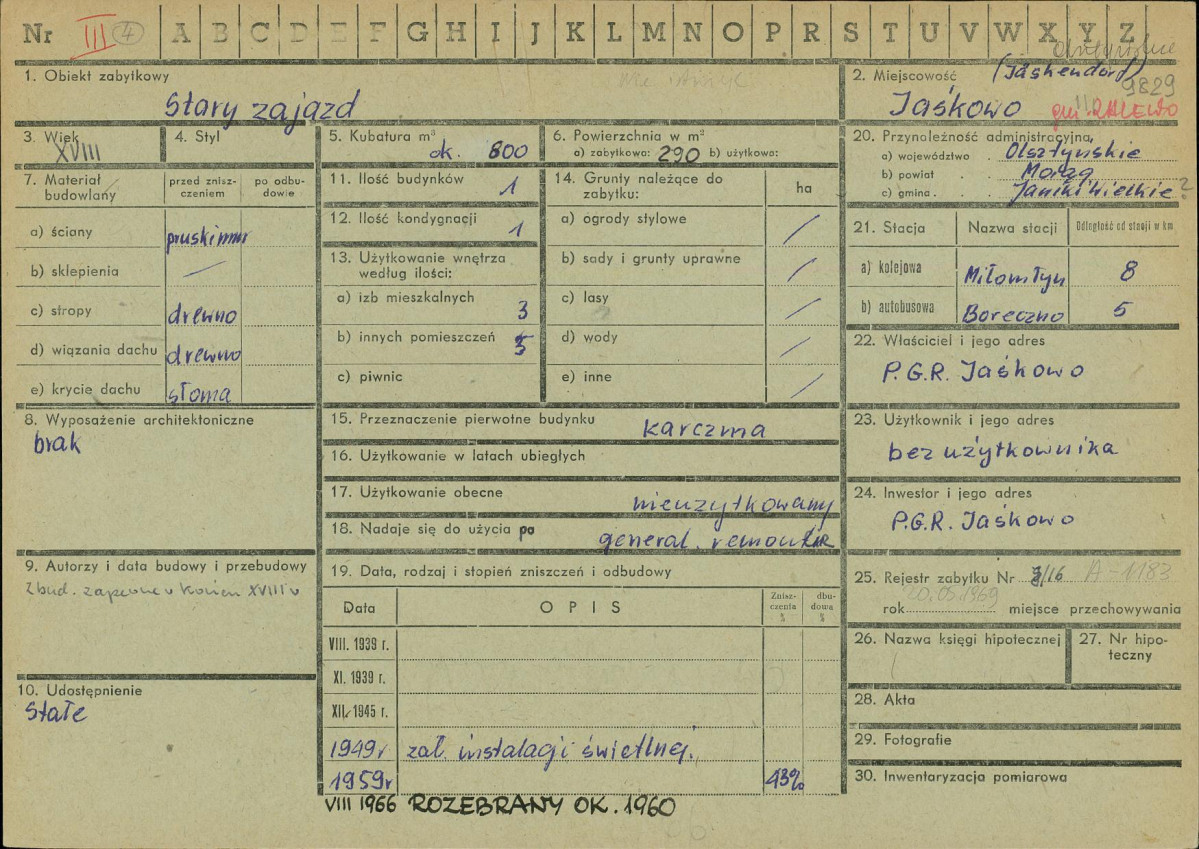 Nr III 4 A B C D E F G H I J K L M N O P R S T U V W X Y Z
1. Obiekt zabytkowy
Stary zajazd
2. Miejscowość (Jäskendorf)
9829
Jaśkowo gm. ZALEWO
3. Wiek
XVIII
4. Styl
5. Kubatura m³
ok. 800
6. Powierzchnia w m²
a) zabytkowa: 290 b) użytkowa:
7. Materiał budowlany
przed znisz-
czeniem
po odbu-
dowie
a) ściany pruski mur
b) sklepienia —
c) stropy drewno
d) wiązania dachu drewno
e) krycie dachu słoma
8. Wyposażenie architektoniczne
brak
9. Autorzy i data budowy i przebudowy
zbud. zapewne w końcu XVIII w
10. Udostępnienie
Stałe
11. Ilość budynków 1
12. Ilość kondygnacji 1
13. Użytkowanie wnętrza
według ilości:
a) izb mieszkalnych 3
b) innych pomieszczeń 5
c) piwnic
14. Grunty należące do
zabytku:
ha
a) ogrody stylowe /
b) sady i grunty uprawne /
c) lasy /
d) wody /
e) inne /
15. Przeznaczenie pierwotne budynku karczma
16. Użytkowanie w latach ubiegłych
17. Użytkowanie obecne nieużytkowany
18. Nadaje się do użycia po general. remoncie
19. Data, rodzaj i stopień zniszczeń i odbudowy
Data
OPIS
Znisz-
czenia
%
dbu-
dowa
%
VIII. 1939 r.
XI. 1939 r.
XII. 1945 r.
1949r zał. instalacji świetlnej.
1959r 43%
VIII 1966 ROZEBRANY OK. 1960
20. Przynależność administracyjna
a) województwo Olsztyńskie
b) powiat Morąg
c) gmina Janiki Wielkie ?
21. Stacja
Nazwa stacji
Odległość od stacji w km
a) kolejowa Miłomłyn 8
b) autobusowa Boreczno 5
22. Właściciel i jego adres
P.G.R. Jaśkowo
23. Użytkownik i jego adres
bez użytkownika
24. Inwestor i jego adres
P.G.R. Jaśkowo
25. Rejestr zabytku Nr 3/16 A-1183
20.05.1969
rok miejsce przechowywania
26. Nazwa księgi hipotecznej
27. Nr hipo-
teczny
28. Akta
29. Fotografie
30. Inwentaryzacja pomiarowa